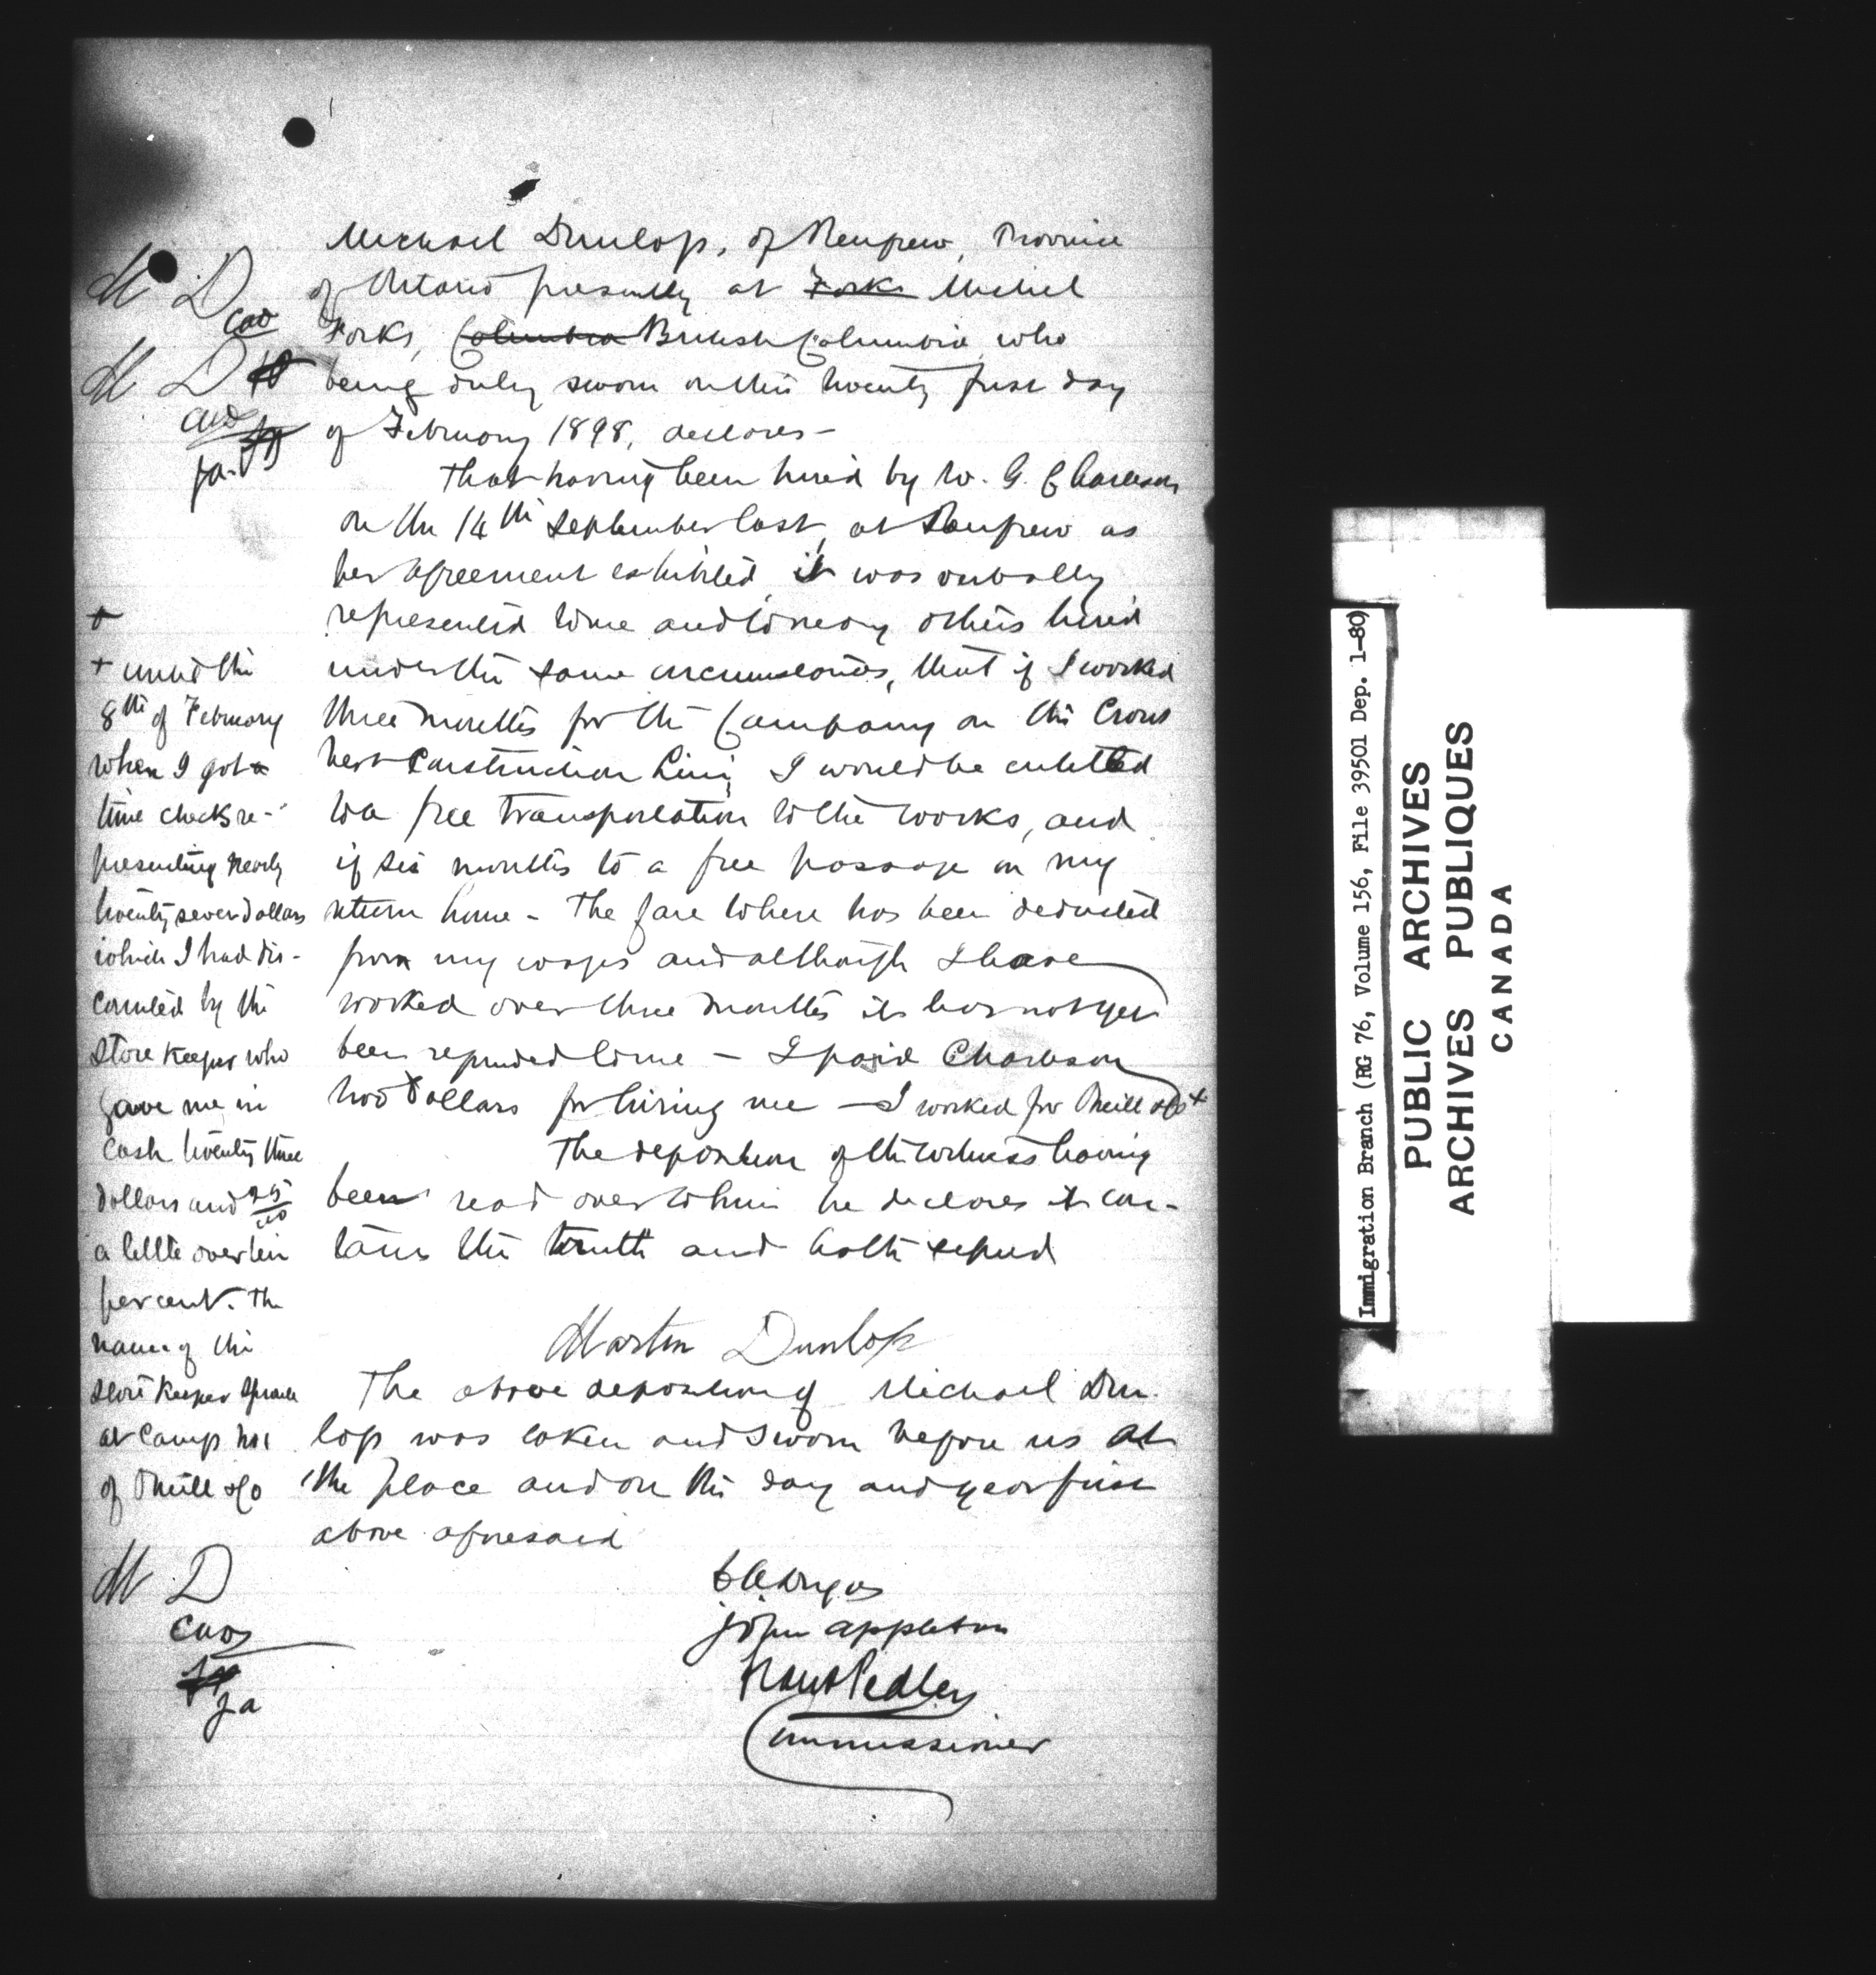 Michael Dunlop, of Renfrew, Province
of Ontario presently at Forks Michel
Forks, Columbia British Columbia who
being duly sworn on this twenty first day
of February 1898, declares -
That having been hired by W. G. Charleson
on the 14th September last, at Renfrew as
per agreement exhibited it was verbally
represented to me and to many others hired
under the same circumstances, that if I worked
three months for the Company on the Crows
nest Construction Line, I would be entitled
to a free transportation to the works, and
if six months to a free passage on my
return home - The fare to here has been deducted
from my wages and although I have
worked over three months it has not yet
been refunded to me - I paid Charleson
two dollars for hiring me - I worked for Oneill & Co +
The deposition of the witness having
been read over to him he declares it con-
tains the truth and hath signed
Martin Dunlop
The above deposition of Michael Dun-
lop was taken and sworn before us at
the place and on the day and year first
above aforesaid
John Appleton
Frank Pedley
Commissioner
M D
CAD
M D
CAD
ja.
+
+ until the
8th of February
when I got a
time check re-
presenting nearly
twenty seven dollars
which I had dis-
counted by the
Store Keeper who
gave me in
cash twenty three
dollars and 25/100
a little over ten
per cent. The
name of the
store keeper
at Camp No 1
of Oneill & Co
M D
CAD
ja
Immigration Branch (RG 76, Volume 156, File 39501 Dep. 1-80)
PUBLIC ARCHIVES
ARCHIVES PUBLIQUES
CANADA